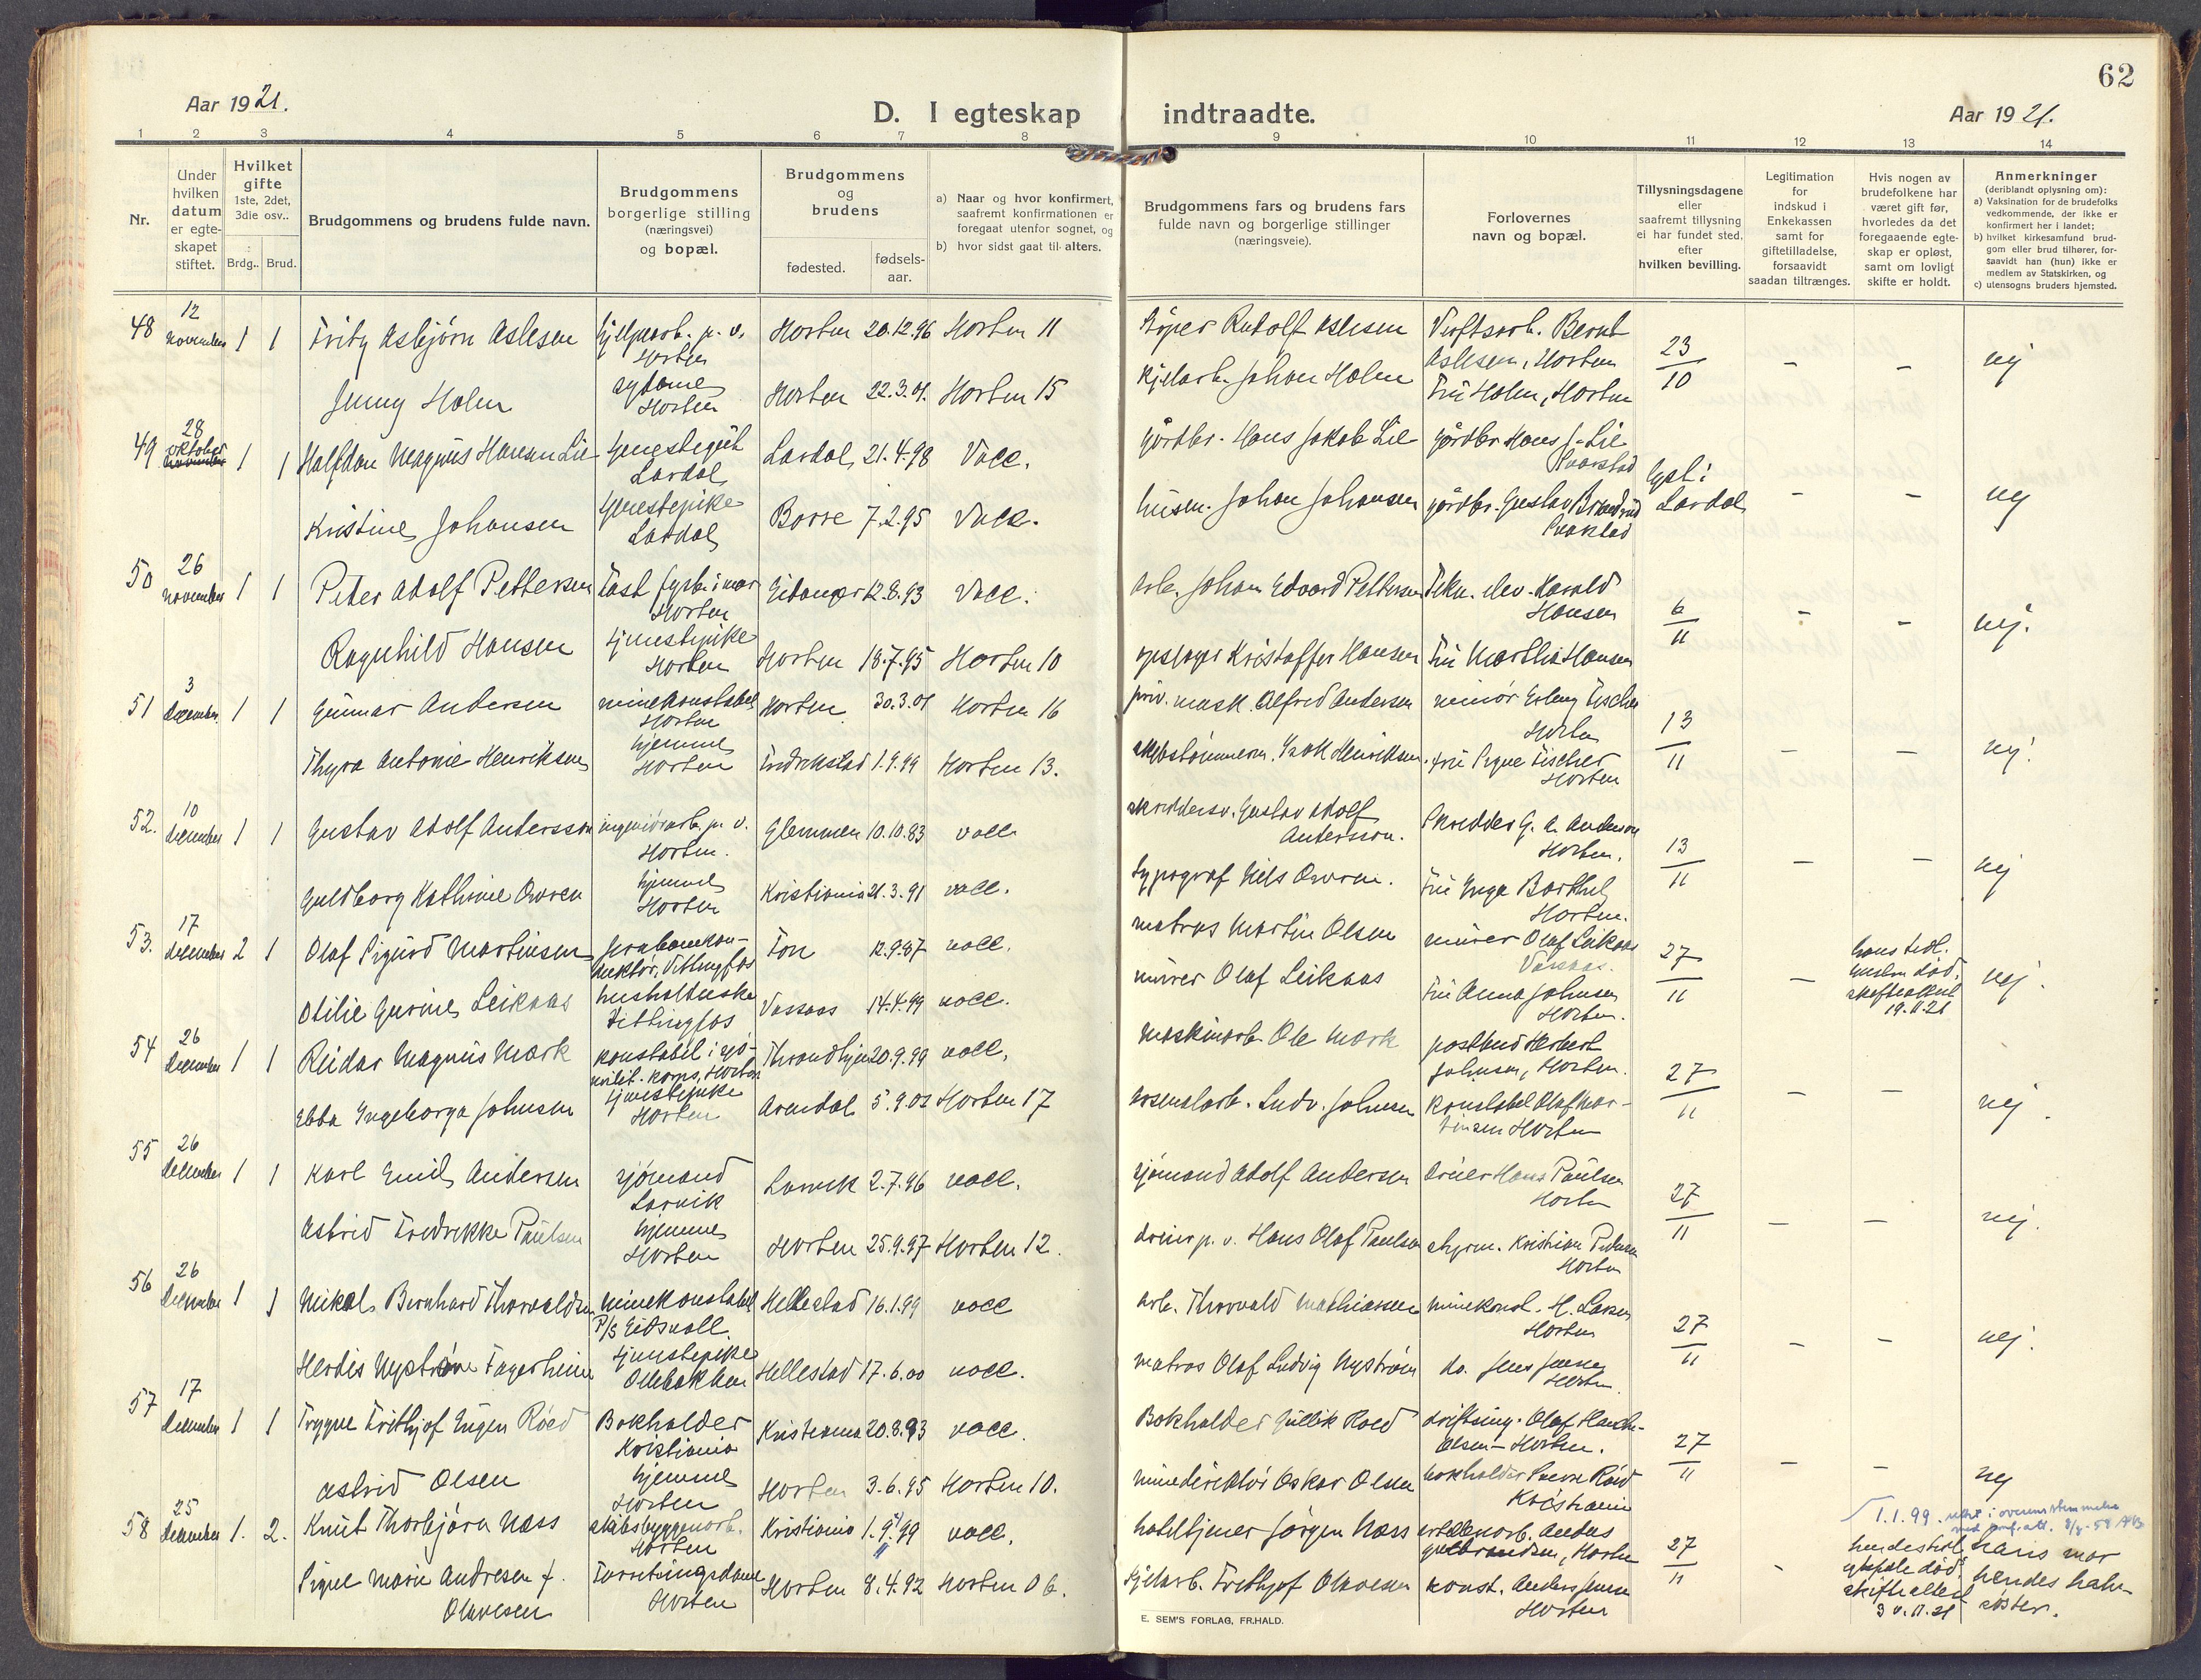 62
Aar 1921.
D. I egteskap indtraadte.
Aar 1921.
1 2 3 4 5 6 7 8 9 10 11 12 13 14
Nr.
Under hvilken datum er egteskapet stiftet.
Hvilket gifte 1ste, 2det, 3die osv..
Brdg.. Brud.
Brudgommens og brudens fulde navn.
Brudgommens borgerlige stilling (næringsvei) og bopæl.
Brudgommens og brudens
fødested.
fødsels-aar.
a) Naar og hvor konfirmert, saafremt konfirmationen er foregaat utenfor sognet, og
b) hvor sidst gaat til alters.
Brudgommens fars og brudens fars fulde navn og borgerlige stillinger (næringsveie).
Forlovernes navn og bopæl.
Tillysningsdagene eller saafremt tillysning ei har fundet sted, efter hvilken bevilling.
Legitimation for indskud i Enkekassen samt for giftetilladelse, forsaavidt saadan tiltrænges.
Hvis nogen av brudefolkene har været gift før, hvorledes da det foregaaende egteskap er opløst, samt om lovligt skifte er holdt.
Anmerkninger (deriblandt oplysning om):
a) Vaksination for de brudefolks vedkommende, der ikke er konfirmert her i landet;
b) hvilket kirkesamfund brudgom eller brud tilhører, forsaavidt han (hun) ikke er medlem av Statskirken, og
c) utensogns bruders hjemsted.
48 12 november 1 1 Fritz Asbjørn Aslesen hjelpearb. p. v. Horten Horten 20.12.96 Horten 11 Rudolf Aslesen Verftsarb. Bernt Aslesen, Horten 23/10 - - nej
Jenny Holm sydame Horten Horten 22.3.01. Horten 15 Kjelarb. Johan Holm Fru Holm, Horten
49 28 oktober 1 1 Halfdan Magnus Hansen Lie Lardal Lardal 21.4.98 Vacc. gårdbr. Hans Jakob Lie gårdbr. Hans J. Lie Svarstad Lyst i Lardal - - nej
Kristine Johansen tjenestepike Lardal Borre 7.2.95 Vacc. husm. Johan Johansen gårdbr. Gustav Svarstad
50 26 november 1 1 Peter Adolf Pettersen Horten Eidanger 12.8.93 Vacc. Arb. Johan Edvard Pettersen Tekn. elev. Harald Hansen 6/11 - - nej.
Ragnhild Hansen tjenestepike Horten Horten 18.7.95 Horten 10 Kristoffer Hansen Fru Martha Hansen
51 3 december 1 1 Gunnar Andersen minekonstabel Horten Horten 30.3.01 Horten 16 mask. Alfred Andersen minør Erling Fischer Horten 13/11 - - nej.
Thyra Antonie Henriksen hjemme Horten Fredrikstad 1.9.99 Horten 13. skibstømmerm. Isak Henriksen fru Signe Fischer Horten
52. 10 december 1 1 Gustav Adolf Andersson p. v. Horten. Glemmen 10.10.83 vacc skreddersv. Gustav Adolf Andersson. Skredder G. A. Anderson Horten. 13/11 - - nej
Guldborg Kathrine Owren hjemme Horten Kristiania 21.3.91 vacc. typograf Nils Owren. Fru Inga Barthel Horten.
53. 17 december 2 1 Olaf Sigurd Martinsen Vittingfos Fon 12.9.87 vacc. matros Martin Olsen murer Olaf Leikaas Vassaas. 27/11 - hans tidl. hustru død, skifteattest 19.11.21 nej.
Otilie Gurine Leikaas husholderske Vittingfos Vassaas 14.4.99 vacc. murer Olaf Leikaas Fru Anna Johnsen Horten.
54 26 december 1 1 Reidar Magnus Mørk konstabel i sjømilit. korps, Horten 20.9.99 vacc. Maskinarb. Ole Mørk postbud Herbert Johnsen, Horten. 27/11 - - nej.
Ebba Ingeborga Johnsen tjenestepike Horten Arendal 5.9.02 Horten 17 arsenalarb. Ludv. Johnsen konstabel Olaf Martinsen Horten
55 26 december 1 1 Karl Emil Andersen sjømand Larvik Larvik 2.7.96 vacc. sjømand Adolf Andersen Hans Paulsen Horten 27/11 - - nej.
Astrid Fredrikke Paulsen hjemme Horten Horten 25.9.97 Horten 12. p. v. Hans Olaf Paulsen styrm. Kristian Horten
56 26 december 1 1 Mikal Bernhard Thorvaldsen minekonstabel P/S Eidsvoll. Hillestad 16.1.99 vacc arb. Thorvald Mathiassen minekonst. H. Larsen Horten 27/11 - - nej.
Herdis Nystrøm Fagerheim tjenestepike Hillestad 17.6.00 vacc. matros Olaf Ludvig Nystrøm do. Jens Jensen Horten.
57 17 december 1 1 Trygve Frithjof Eugen Røed Bokholder Kristiania Kristiania 20.8.93 vacc. Bokholder Gullik Roed driftsing. Olaf Olsen - Horten. 27/11 - - nej
Astrid Olsen hjemme Horten Horten 3.6.95 Horten 10. minedirektør Oskar Olsen bokholder Røed Kristiania
58 25 december 1. 2. Knut Thorbjørn Næss skibsbyggerarb. Horten Kristiania 1.9.99 vacc. hoteltjener Jørgen Næss Anders Gulbrandsen, Horten 27/11 - hendes tidl. død, skifteattest 30.11.21 1.1.99. rettet i overensstemmelse med hans mor hendes halvsøster.
Signe Marie Andresen f. Olavesen Forretningsdame Horten Horten 8.4.92 Horten 06. Kjelarb. Frithjof Olavesen konst. Anders Jensen Horten
E. SEM'S FORLAG, FR.HALD.